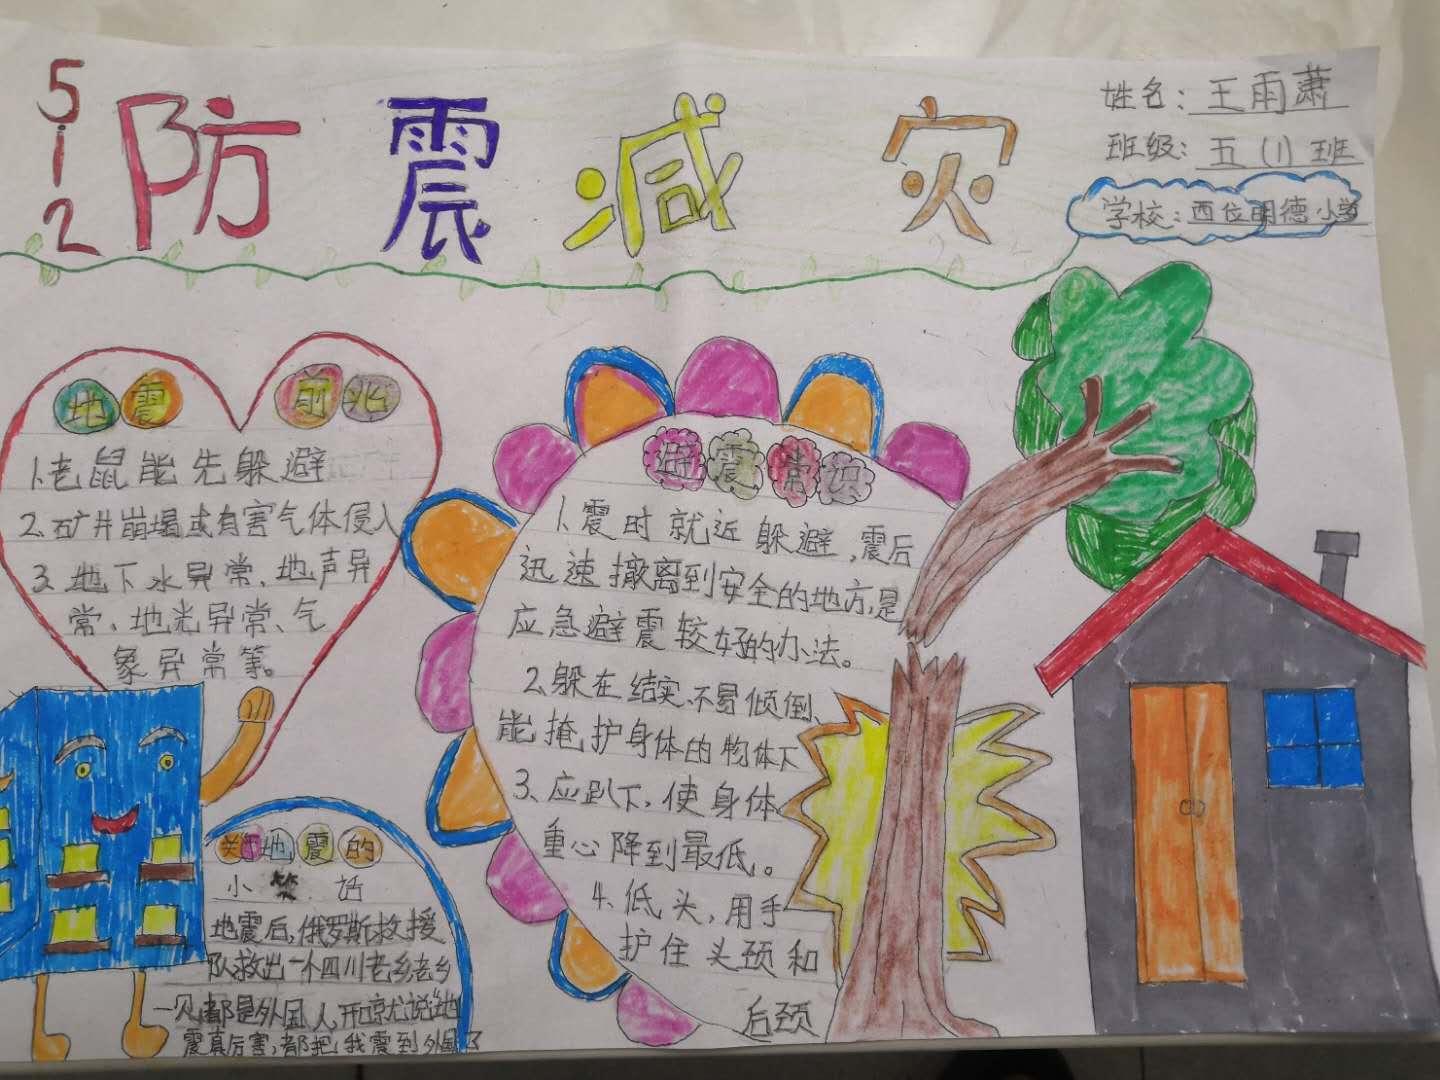 512
防震减灾
姓名：王雨萧
班级：五（1）班
学校：西位明德小学
地震前兆
1.老鼠能先躲避
2.矿井崩塌或有害气体侵入
3.地下水异常、地声异
常、地光异常、气
象异常等。
避震常识
1.震时就近躲避，震后
迅速撤离到安全的地方，是
应急避震较好的办法。
2.躲在结实、不易倾倒、
能掩护身体的物体下
3、应趴下，使身体
重心降到最低。
4.低头，用手
护住头颈和
后颈
关于地震的
小笑话
地震后，俄罗斯救援
队救出一个四川老乡老乡
一见都是外国人，开口就说“地
震真厉害，都把我震到外国了